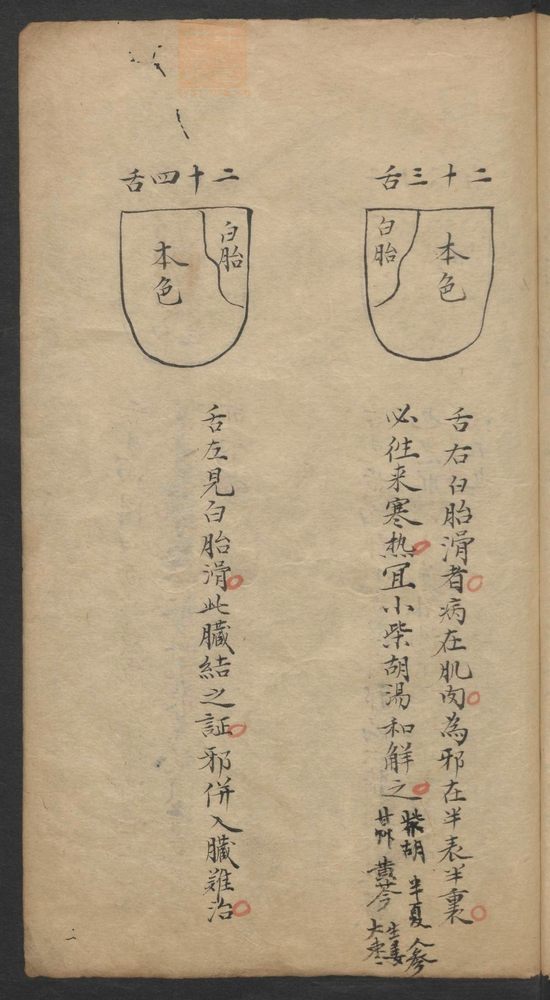 二十三舌
本色
白胎
舌右白胎滑者病在肌肉為邪在半表半裏
必徃来寒热宜小柴胡湯和解之
柴胡 半夏 人参
甘艸 黄芩 生姜 大枣
二十四舌
白胎
本色
舌左見白胎滑此臓結之証邪併入臓難治